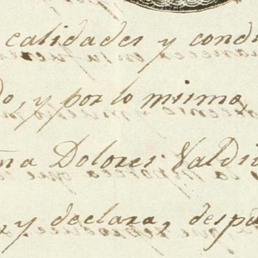 calidades y condi
do, y por lo mismo,
ña Dolores Valdi
y declara, despa